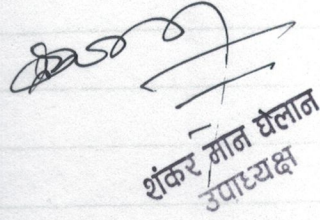 शंकर मान घेलान
उपाध्यक्ष